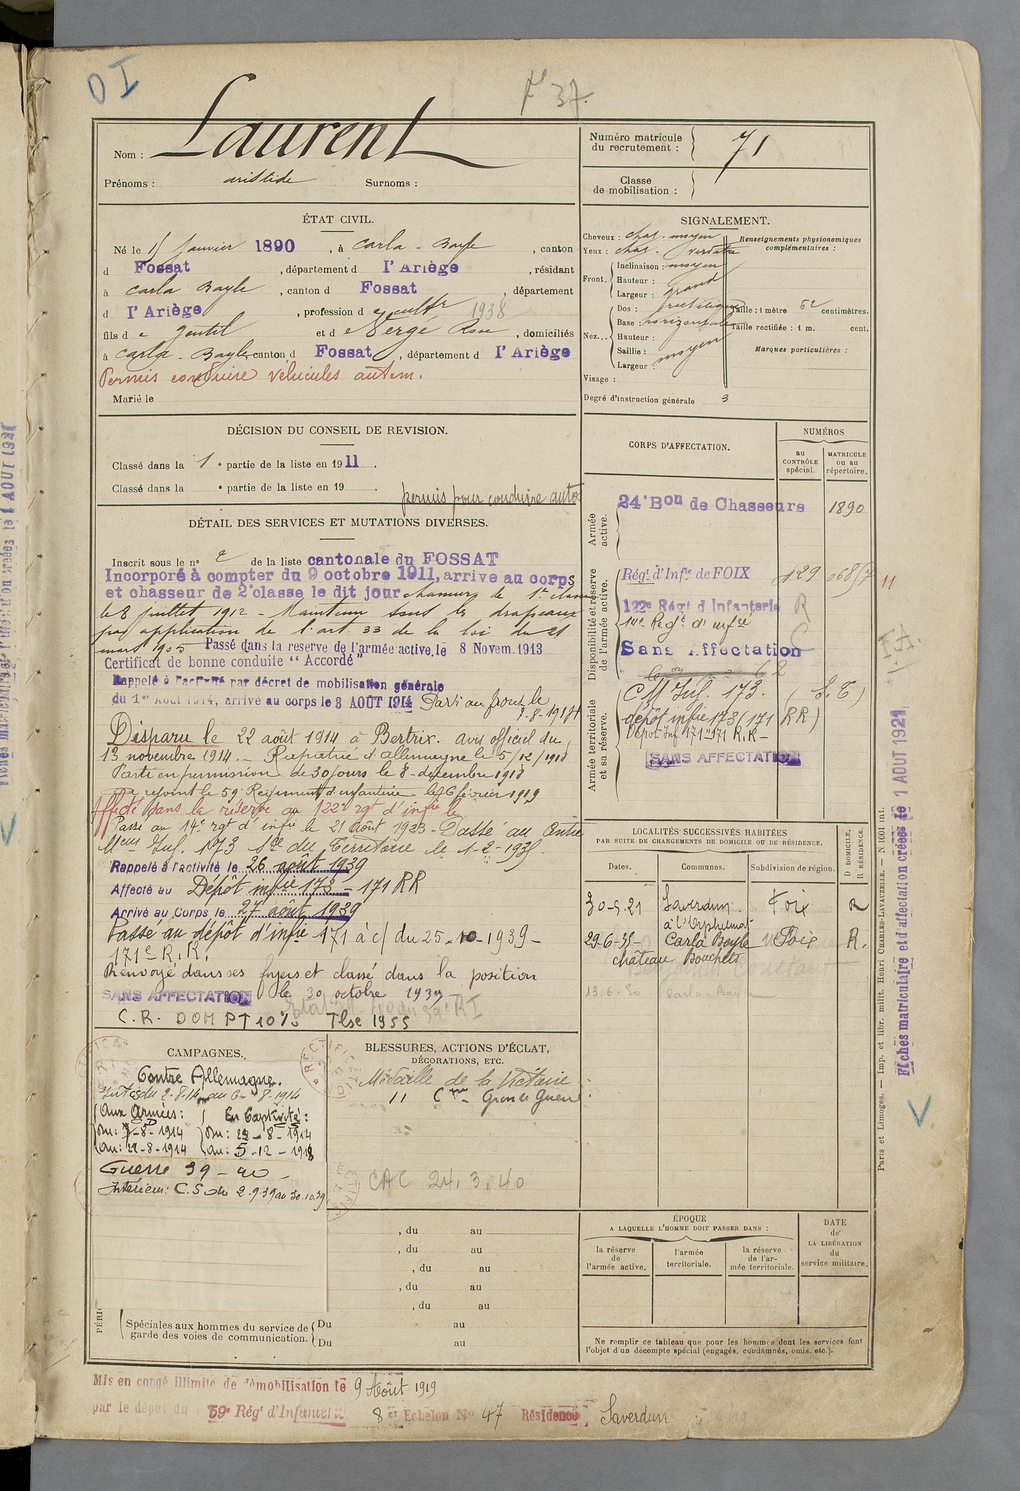 OI
F° 37.
Nom : Laurent
Prénoms : aristide Surnoms :
Numéro matricule
du recrutement : 71
Classe
de mobilisation :
ÉTAT CIVIL.
Né le 15 Janvier 1890, à Carla-Bayle, canton
d Fossat, département d l'Ariège, résidant
à Carla Bayle, canton d Fossat, département
d l'Ariège, profession d cultr 1938
fils de Gentil et de Serge Rose, domiciliés
à Carla-Bayle canton d Fossat, département d l'Ariège
Permis conduire véhicules autom.
Marié le
SIGNALEMENT.
Cheveux : chat. moyen
Yeux : chat. verdatre
Renseignements physionomiques
complémentaires :
Front. Inclinaison : moyen
Hauteur :
Largeur : grand
Nez... Dos : rectiligne
Base : horizontale
Hauteur :
Saillie : moyen
Largeur :
Taille : 1 mètre 62 centimètres.
Taille rectifiée : 1 m. cent.
Marques particulières :
Visage :
Degré d'instruction générale 3
DÉCISION DU CONSEIL DE REVISION.
Classé dans la 1e partie de la liste en 1911.
Classé dans la e partie de la liste en 19
permis pour conduire autos
DÉTAIL DES SERVICES ET MUTATIONS DIVERSES.
Inscrit sous le n° 2 de la liste cantonale du FOSSAT
Incorporé à compter du 9 octobre 1911, arrive au corps
et chasseur de 2e classe le dit jour chasseur de 1re classe
le 8 juillet 1912 - Maintenu sous les drapeaux
par application de l'art 33 de la loi du 21
mars 1905 Passé dans la reserve de l'armée active, le 8 Novem. 1913
Certificat de bonne conduite "Accordé"
Rappelé à l'activité par décret de mobilisation générale
du 1er Août 1914, arrivé au corps le 3 AOÛT 1914 Parti au front le
7-8-1914
Disparu le 22 août 1914 à Bertrix. avis officiel du
13 novembre 1914. - Rapatrié d'Allemagne le 5/12/1918
Parti en permission de 30 jours le 8 décembre 1918
rejoint le 59e Régiment d'infanterie le 6 février 1919
Affecté dans la réserve au 122e rgt d'infie le
Passé au 14e rgt d'infie le 21 août 1923 - Passé au Centre
Mob. Inf. 173 Sce du Territoire le 1-2-1935
Rappelé à l'activité le 26 août 1939
Affecté au Dépôt infie 173 - 171 RR
Arrivé au Corps le 27 août 1939
Passé au dépôt d'infie 171 à c/ du 25-10-1939 -
171e R.R.
Renvoyé dans ses foyers et classé dans la position
SANS AFFECTATION le 30 octobre 1939
C.R. DOM PT 10% Tlse 1955
CORPS D'AFFECTATION.
NUMÉROS
au
CONTRÔLE
spécial.
MATRICULE
ou au
répertoire.
Armée
active.
24e Bon de Chasseurs 1890
Disponibilité et réserve
de l'armée active.
Régt d'Infie de FOIX 129 068/7 11
122e Régt d'Infanterie R
14e Regt d'infie
Sans Affectation
Armée territoriale
et sa réserve.
CM Inf. 173. (S.T)
dépôt infie 173 (171 RR)
Dépôt Inf 171 - 171 R.R -
SANS AFFECTATION
LOCALITÉS SUCCESSIVES HABITÉES
PAR SUITE DE CHANGEMENTS DE DOMICILE OU DE RÉSIDENCE.
Dates. Communes. Subdivision de région.
D DOMICILE,
R RÉSIDENCE.
30-5-21 Saverdun Foix R
à l'Orphelinat
29-6-35- Carla Bayle Foix R.
chateau Bouchets
13.6.30 Carla-Bayle
CAMPAGNES.
Contre Allemagne.
Intr du 2-8-14 au 6-8-1914
Aux Armées : En Captivité :
Du : 7-8-1914 Du : 22-8-1914
Au : 21-8-1914 Au : 5-12-1918
Guerre 39-40
Intérieur : C.S du 2.9.39 au 30.10.39
BLESSURES, ACTIONS D'ÉCLAT,
DÉCORATIONS, ETC.
Médaille de la Victoire
11 Cve Grande Guerre
CAC 24.3.40
, du au
, du au
, du au
, du au
, du au
Spéciales aux hommes du service de
garde des voies de communication.
Du au
Du au
ÉPOQUE
A LAQUELLE L'HOMME DOIT PASSER DANS :
la réserve
de
l'armée active.
l'armée
territoriale.
la réserve
de l'ar-
mée territoriale.
DATE
de
LA LIBÉRATION
du
service militaire.
Ne remplir ce tableau que pour les hommes dont les services font
l'objet d'un décompte spécial (engagés, condamnés, omis, etc.).
Mis en congé illimité de démobilisation le 9 Août 1919
par le dépôt du 59e Régt d'Infanterie 8e Echelon No 47 Résidence Saverdun
Paris et Limoges. — Imp. et libr. milit. Henri CHARLES-LAVAUZELLE. — N 1001 int.
Fiches matriculaire et d'affectation créées le 1 AOUT 1921